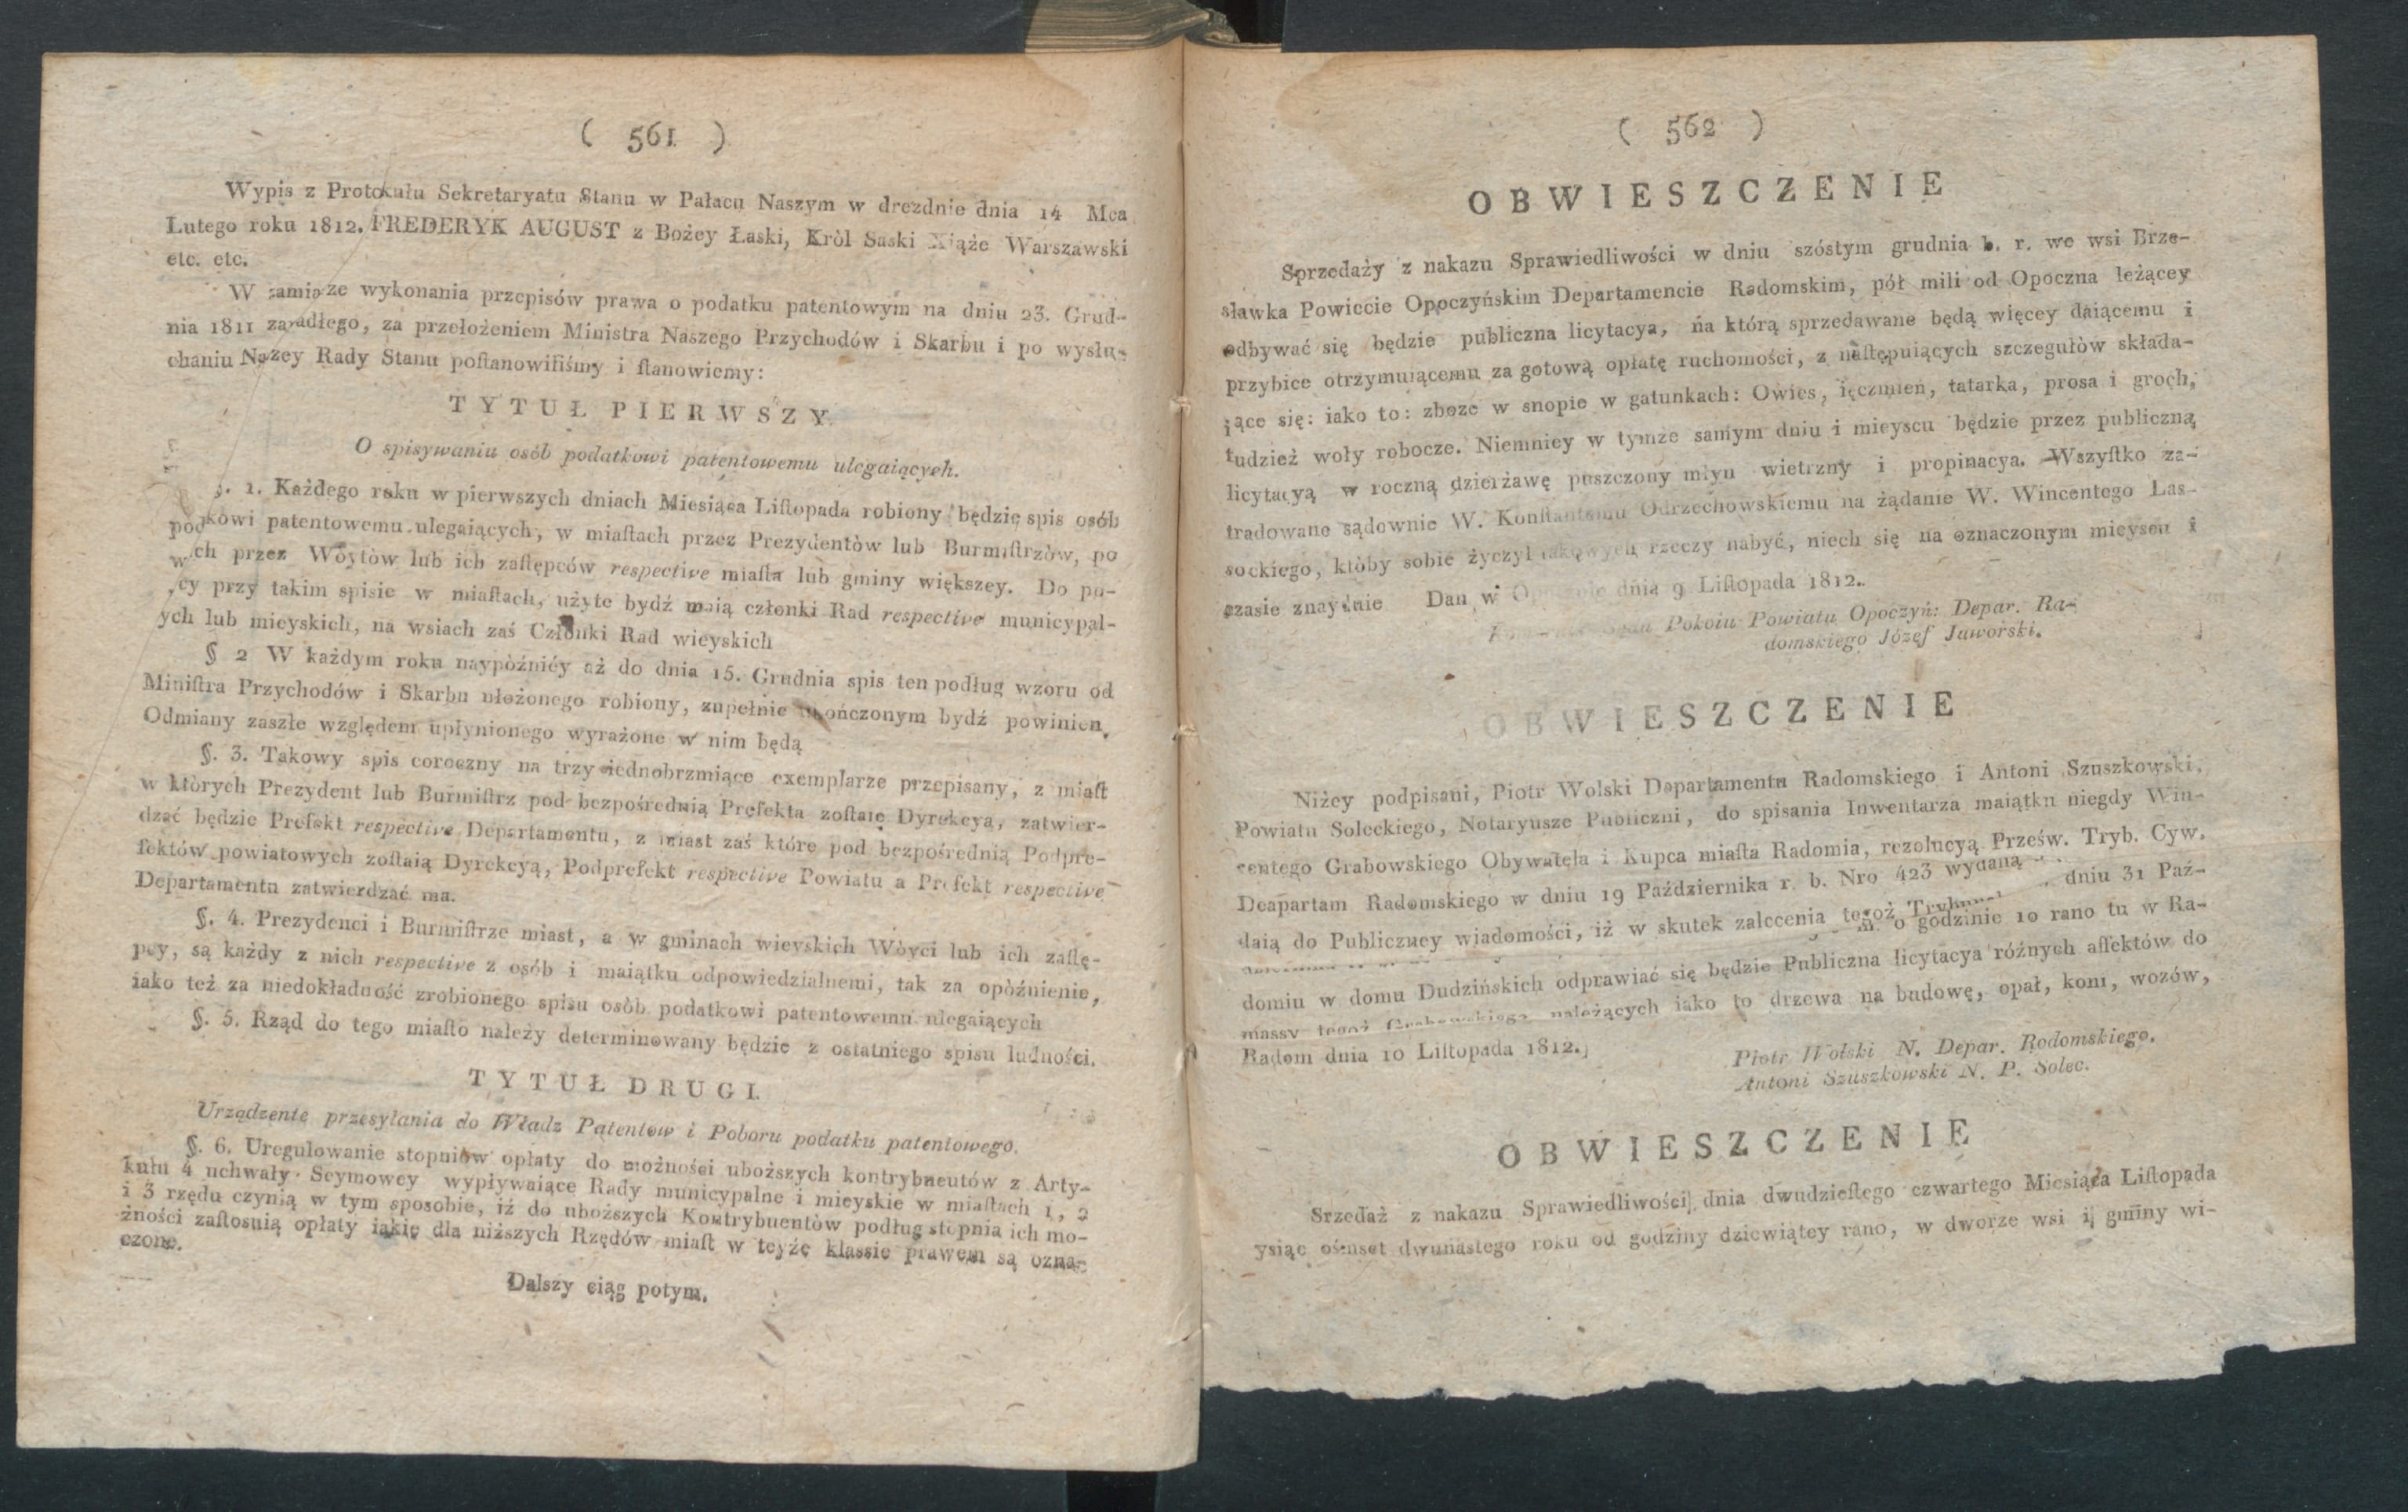 ( 561 )
Wypis z Protokułu Sekretaryatu Stanu w Pałacu Naszym w drezdnie dnia 14 Mca
Lutego roku 1812. FREDERYK AUGUST z Bożey Łaski, Król Saski Xiąże Warszawski
etc. etc.
W zamiarze wykonania przepisów prawa o podatku patentowym na dniu 23. Grud-
nia 1811 zapadłego, za przełożeniem Ministra Naszego Przychodów i Skarbu i po wysłu-
chaniu Nazey Rady Stanu poſtanowiliśmy i ſtanowiemy:
TYTUŁ PIERWSZY.
O spisywaniu osób podatkowi patentowemu ulegaiących.
§. 1. Każdego roku w pierwszych dniach Miesiąca Liſtopada robiony będzie spis osób
podkowi patentowemu ulegaiących, w miaſtach przez Prezydentòw lub Burmiſtrzòw, po
wch przez Wòytòw lub ich zaſtępców respective miaſta lub gminy większey. Do pu-
cy przy takim spisie w miaſtach, użyte bydź maią członki Rad respective municypal-
ych lub mieyskich, na wsiach zaś Członki Rad wieyskich
§ 2 W każdym roku naypòźniéy aż do dnia 15. Grudnia spis ten podług wzoru od
Miniſtra Przychodów i Skarbu ułożonego robiony, zupełnie ukończonym bydź powinien.
Odmiany zaszłe względem upłynionego wyrażone w nim będą
§. 3. Takowy spis coroczny na trzy iednobrzmiące exemplarze przepisany, z miaſt
w których Prezydent lub Burmiſtrz pod bezpośrednią Prefekta zoſtaie Dyrekcya, zatwier-
dzać będzie Prefekt respective Departamentu, z miast zaś które pod bezpośrednią Podpre-
fektów powiatowych zoſtaią Dyrekcyą, Podprefekt respective Powiatu a Prefekt respective
Departamentu zatwierdzać ma.
§. 4. Prezydenci i Burmiſtrze miast, a w gminach wieyskich Wòyci lub ich zaſtę-
pcy, są każdy z nich respective z osób i maiątku odpowiedzialnemi, tak za opòźnienie,
iako też za niedokładność zrobionego spisu osòb podatkowi patentowemu ulegaiących
§. 5. Rząd do tego miaſto należy determinowany będzie z ostatniego spisu ludności.
TYTUŁ DRUGI.
Urządzenie przesyłania do Władz Patentow i Poboru podatku patentowego.
§. 6. Uregulowanie stopniów opłaty do możności uboższych kontrybuentów z Arty-
kułu 4 uchwały Seymowey wypływaiące Rady municypalne i mieyskie w miaſtach 1, 2
i 3 rzędu czynią w tym sposobie, iż do uboższych Kontrybuentòw podług stopnia ich mo-
żności zaſtosuią opłaty iakie dla niższych Rzędów miaſt w teyże klassie prawem są ozna-
czone.
Dalszy ciąg potym.
( 562 )
OBWIESZCZENIE
Sprzedaży z nakazu Sprawiedliwości w dniu szóstym grudnia b. r. we wsi Brze-
sławka Powiecie Opoczyńskim Departamencie Radomskim, pół mili od Opoczna leżącey
odbywać się będzie publiczna licytacya, na którą sprzedawane będą więcey daiącemu i
przybice otrzymuiącemu za gotową opłatę ruchomości, z naſtępuiących szczegułòw składa-
iące się: iako to: zboże w snopie w gatunkach: Owies, ięczmień, tatarka, prosa i groch,
tudzież woły robocze. Niemniey w tymże samym dniu i mieyscu będzie przez publiczną
licytacyą w roczną dzierżawę puszczony młyn wietrzny i propinacya. Wszyſtko za-
tradowane sądownie W. Konſtantemu Odrzechowskiemu na żądanie W. Wincentego Las-
sockiego, któby sobie życzył takowych rzeczy nabyć, niech się na oznaczonym mieyscu i
czasie znaydnie Dan w Opocznie dnia 9 Liſtopada 1812.
Sądu Pokoiu Powiatu Opoczyń: Depar. Ra-
domskiego Józef Jaworski.
OBWIESZCZENIE
Niżey podpisani, Piotr Wolski Departamentu Radomskiego i Antoni Szuszkowski,
Powiatu Soleckiego, Notaryusze Publiczni, do spisania Inwentarza maiątku niegdy Win-
centego Grabowskiego Obywatela i Kupca miaſta Radomia, rezolucyą Prześw. Tryb. Cyw.
Deapartam Radomskiego w dniu 19 Października r. b. Nro 423 wydaną
daią do Publiczney wiadomości, iż w skutek zalecenia tegoż dniu 31 Paź-
o godzinie 10 rano tu w Ra-
domiu w domu Dudzińskich odprawiać się będzie Publiczna licytacya różnych affektów do
massy tegoż Grabowskiego należących iako to drzewa na budowę, opał, koni, wozów,
Radom dnia 10 Liſtopada 1812.
Piotr Wolski N. Depar. Rodomskiego.
Antoni Szuszkowski N. P. Solec.
OBWIESZCZENIE
Srzedaż z nakazu Sprawiedliwości dnia dwudzieſtego czwartego Miesiąca Liſtopada
ysiąc ośmset dwunastego roku od godziny dziewiątey rano, w dworze wsi i gminy wi-